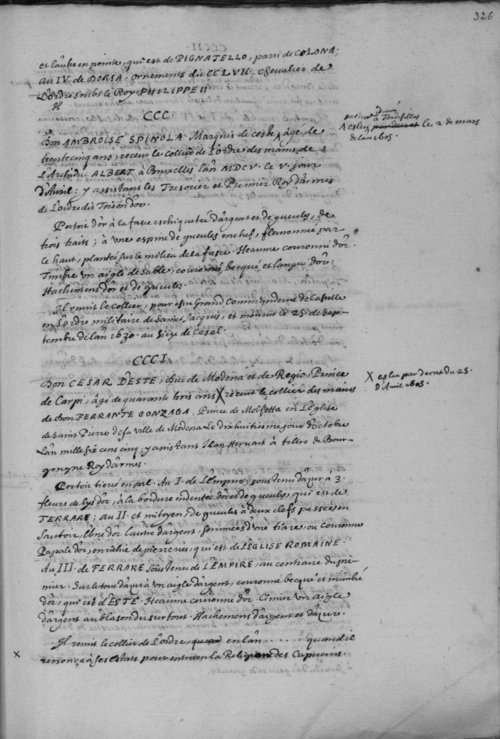 326
et l'autre en pointe, qui est de PIGNATELLO, parti de COLONA;
Au IV. de BORIA. ornements du CCLVII. Chevalier de
L'ordre soubs le Roy PHILIPPE II
CCC
Don AMBROISE SPINOLA Marquis de âge de
trente cinq ans, receut le collier de L'ordre des mains de
L'Archiduc ALBERT à Bruxelles l'an MDCV. le V. jour
D'Avril: y assistans les Tresorier et Premier Roy d'armes
de L'ordre dis Toison d'or.
à
eslu le 2 de mars
de l'an 1605.
Portoit d'or à la fasce eschiquetée d'argent et de gueules, de
trois traits; à une espine de gueules en chef, fleuronnée par
le haut, plantée sur le milieu de la fasce. Heaume couronné d'or.
Timbre un aigle de sable, couronné becqué et langué d'or.
Hachemens d'or et de gueules.
Il remit le collier, pour estre Grand Commandeur de Castille
en L'ordre militaire de Saint Jacques, et mourut le 25 de Sep-
tembre de l'an 1630. au Siege de Casal.
CCCI
Don CESAR D'ESTE, Duc de Modena et de Regio Prince
de Carpi, âgé de quarante trois ans X receut le collier des mains
de Don FERRANTE GONZAGA, Prince de Molfetta en L'Eglise
de Saint Pierre de sa ville de Modena Le dix huitiesme jour d'octobre
L'an mille six cens cinq, y assistant Jean Hervart à tiltre de Bour-
gongne Roy d'armes.
X eslu par du 25.
d'Avril 1605.
Portoit tiercé en pal. Au I. de L'Empire, soustenu d'azur à 3.
fleurs de lys d'or, à la bordure endentée d'or et de gueules, qui est de
FERRARE; au II. et mitoyen, de gueules à deux clefs passées en
sautoir, L'une d'or L'autre d'argent, sommées d'une tiare, ou Couronne
Papale d'or, enrichie de pierreries, qui est de L'EGLISE ROMAINE.
Au III. de FERRARE soustenu de L'EMPIRE, au contraire du pre-
mier. Sur le tout d'azur à un aigle d'argent, couronné becqué et membré
d'or, qui est d'ESTE. Heaume couronné d'or. Cimier un aigle
d'argent au blason du surtout. Hachemens d'argent et d'azur.
Il remit le collier de L'ordre, en l'an ........ quand il
X renonça à ses Estats pour entrer en la Religion des Capucins.